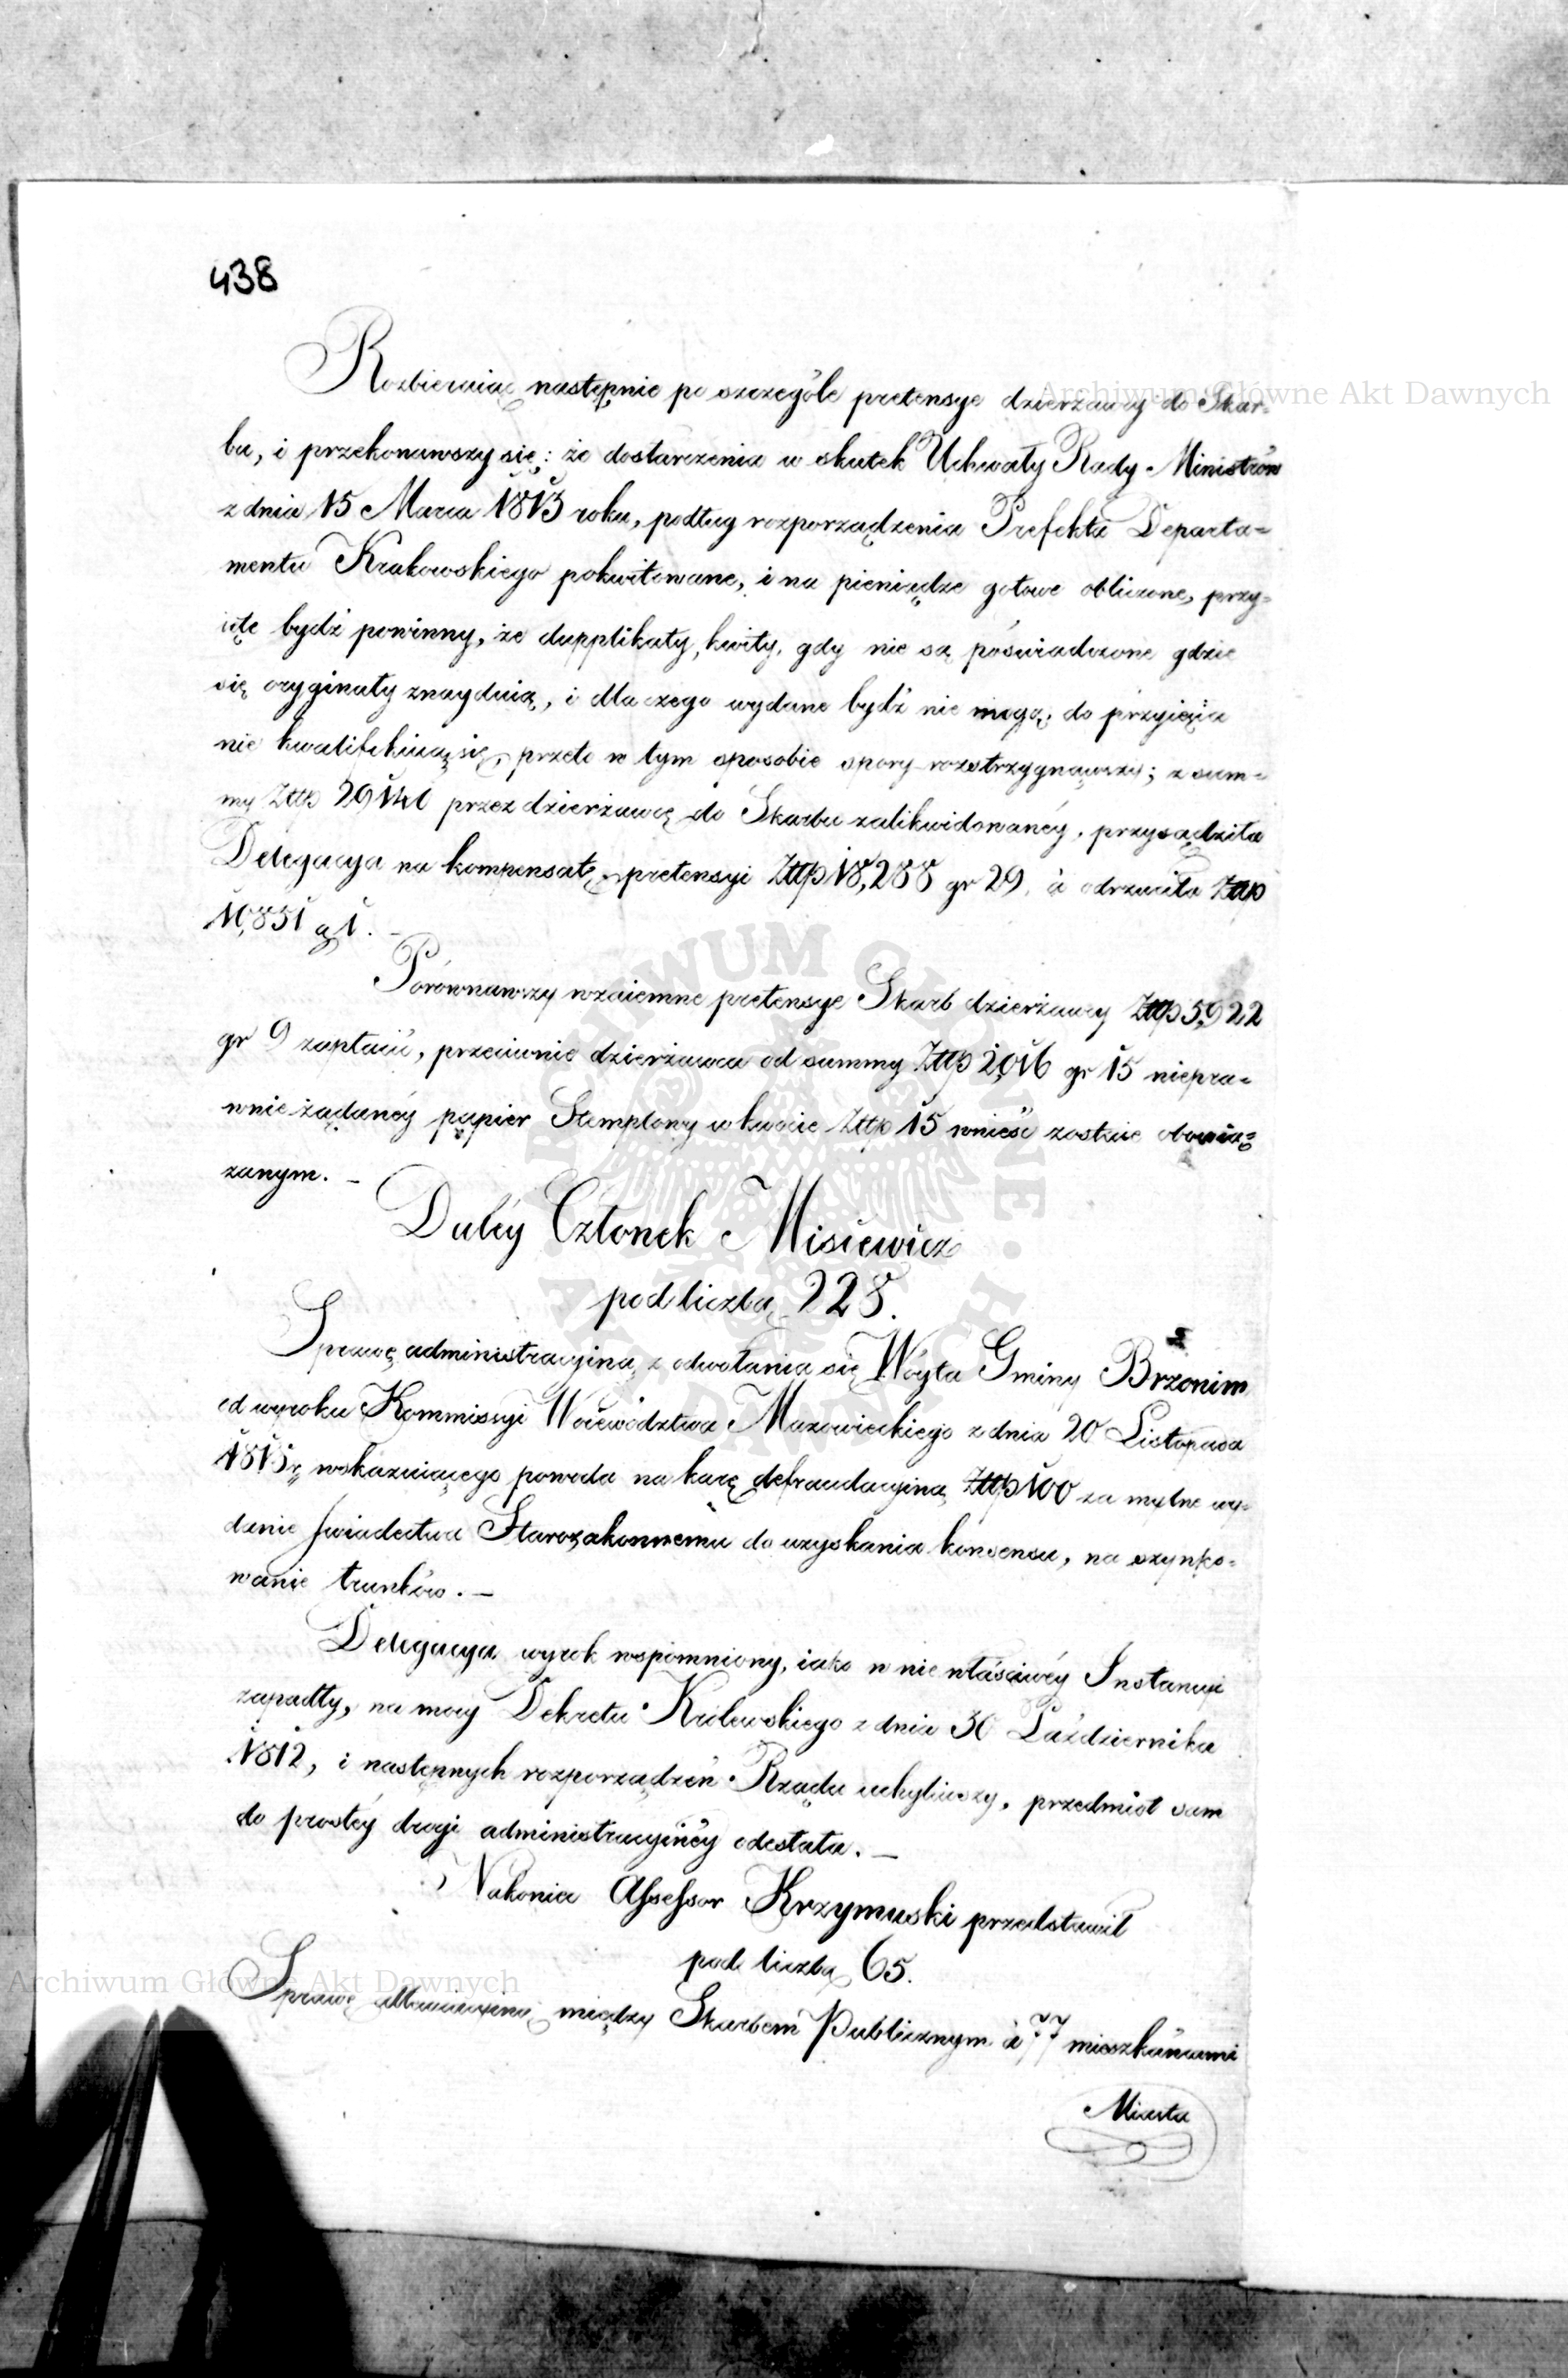 438
Rozbieraiąc następnie po szczególe pretensye dzierżawcy do Skar=
bu, i przekonawszy się; że dostarczenia w skutek Uchwały Rady Ministrów
z dnia 15 Marca 1813 roku, podług rozporządzenia Prefekta Departa=
mentu Krakowskiego pokwitowane, i na pieniądze gotowe obliczone, przy=
ięte bydź powinny, że dupplikaty, kwity, gdy nie są poświadczone gdzie
się oryginały znayduią, i dla czego wydane bydź nie mogą, do przyięcia
nie kwalifikuią się, przeto w tym sposobie spory rozstrzygnąwszy; z sum=
my Złłp 29140 przez dzierżawcę do Skarbu zalikwidowanéy, przysądziła
Delegacya na kompensatę pretensyi Złłp 18,288 gr 29, à odrzuciła Złłp
10,851 g 1. —
Porównawszy wzaiemne pretensye Skarb dzierżawcy Złłp 5,922
gr 9 zapłacić, przeciwnie dzierżawca od summy Złłp 2,016 gr 15 niepra=
wnie żądanéy papier Stemplony w kwocie Złłp 15 wnieść zostaie obowią=
zanym. —
Daléy Członek Misiewicz
pod liczbą 228.
Sprawę administracyiną z odwołania się Wóyta Gminy Brzonim
od wyroku Kommissyi Woiewództwa Mazowieckiego z dnia 20 Listopada
1818 r. wskazuiącego powoda na karę defraudacyiną Złłp 100 za mylne wy=
danie świadectwa Starozakonnemu do uzyskania konsensu, na szynko=
wanie trunków. —
Delegacya wyrok wspomniony, iako w nie właściwéy Instancyi
zapadły, na mocy Dekretu Królewskiego z dnia 30 Października
1812, i następnych rozporządzeń Rządu uchyliwszy, przedmiot sam
do prostéy drogi administracyinéy odesłała. —
Nakoniec Assessor Krzymuski przedstawił
pod liczbą 65.
Sprawę między Skarbem Publicznym à 77 mieszkańcami
Miasta
Archiwum Główne Akt Dawnych
Archiwum Główne Akt Dawnych
ARCHIWUM GŁÓWNE AKT DAWNYCH